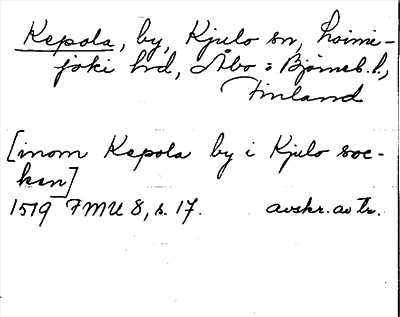 Kepola, by, Kjulo sn, Loimi-
joki hd, Åbo o Björneb. l.,
Finland
[inom Kepola by i Kjulo soc-
ken]
1519 FMU 8, s. 17. avskr. av tr.